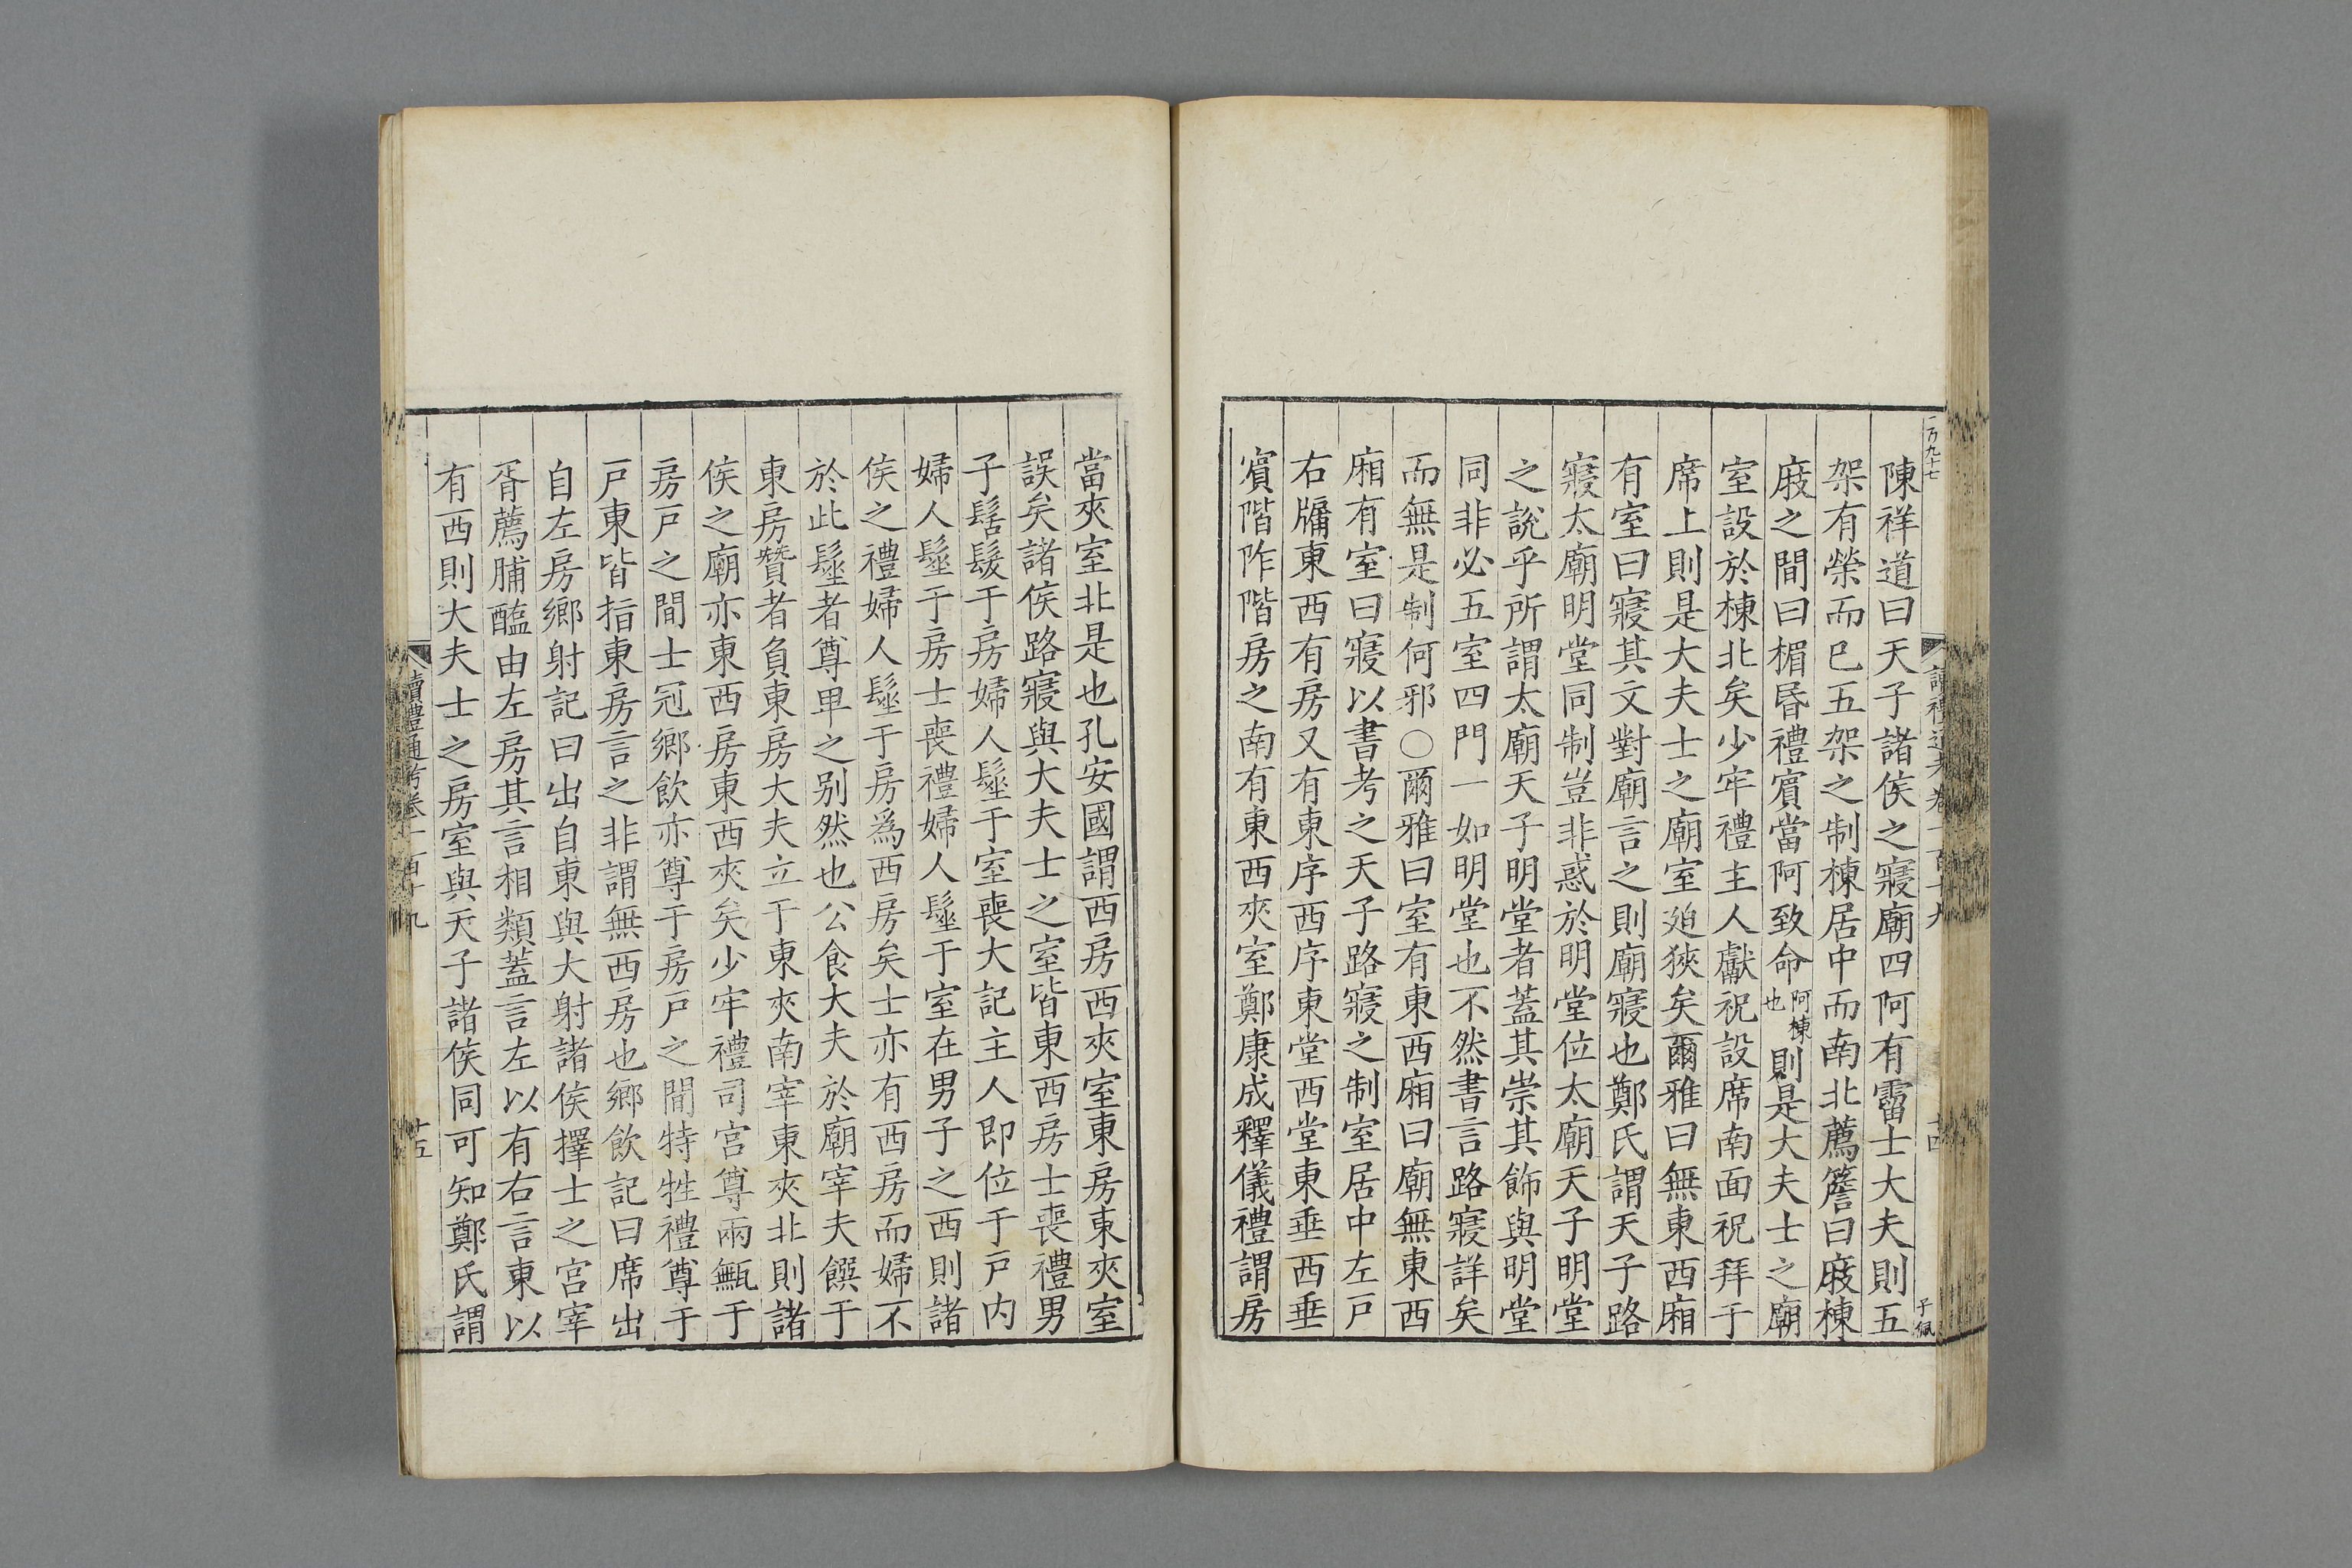 陳祥道曰天子諸侯之寢廟四阿有霤士大夫則五
架有榮而已五架之制棟居中而南北薦簷曰庪棟
庪之間曰楣昏禮賓當阿致命阿棟也則是大夫士之廟
室設於棟北矣少牢禮主人獻祝設席南面祝拜于
席上則是大夫士之廟室廹狹矣爾雅曰無東西廂
有室曰寢其文對廟言之則廟寢也鄭氏謂天子路
寢太廟明堂同制豈非惑於明堂位太廟天子明堂
之說乎所謂太廟天子明堂者蓋其崇其飾與明堂
同非必五室四門一如明堂也不然書言路寢詳矣
而無是制何邪○爾雅曰室有東西廂曰廟無東西
廂有室曰寢以書考之天子路寢之制室居中左戸
右牖東西有房又有東序西序東堂西堂東垂西垂
賓階阼階房之南有東西夾室鄭康成釋儀禮謂房
當夾室北是也孔安國謂西房西夾室東房東夾室
誤矣諸侯路寢與大夫士之室皆東西房士喪禮男
子髺髮于房婦人髽于室喪大記主人即位于戸内
婦人髽于房士喪禮婦人髽于室在男子之西則諸
侯之禮婦人髽于房爲西房矣士亦有西房而婦不
於此髽者尊卑之别然也公食大夫於廟宰夫饌于
東房贊者負東房大夫立于東夾南宰東夾北則諸
侯之廟亦東西房東西夾矣少牢禮司宫尊兩甒于
房戸之間士冠鄉飲亦尊于房戸之間特牲禮尊于
戸東皆指東房言之非謂無西房也鄉飲記曰席出
自左房鄉射記曰出自東與大射諸侯擇士之宫宰
胥薦脯醢由左房其言相類蓋言左以有右言東以
有西則大夫士之房室與天子諸侯同可知鄭氏謂
讀禮通考卷一百十九
十四
子佩
讀禮通考卷一百十九
十五